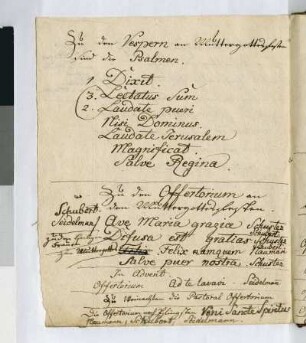 Zu den Vespern an Muttergottesfesten
sind die Psalmen.
1. Dixit.
3. Laetatus Sum
2. Laudate pueri
Nisi Dominus.
Laudate Jerusalem
Magnificat.
Salve Regina.
Zu den Offertorium an
den Muttergottesfesten
Schubert.
Seidelman Ave Maria grazia Schuster
Difusa est gratias Schuster
Felix namquem Nauman
Salve puer nostra Schuster
In Advent.
Offertorium Ad te lavavi Seidelman
Zu Weinachten die Pastoral Offertorium
Die Offertorium auf Pfingsten Veni Sancte Spiritus
Naumann, Schubert Seidelmann.